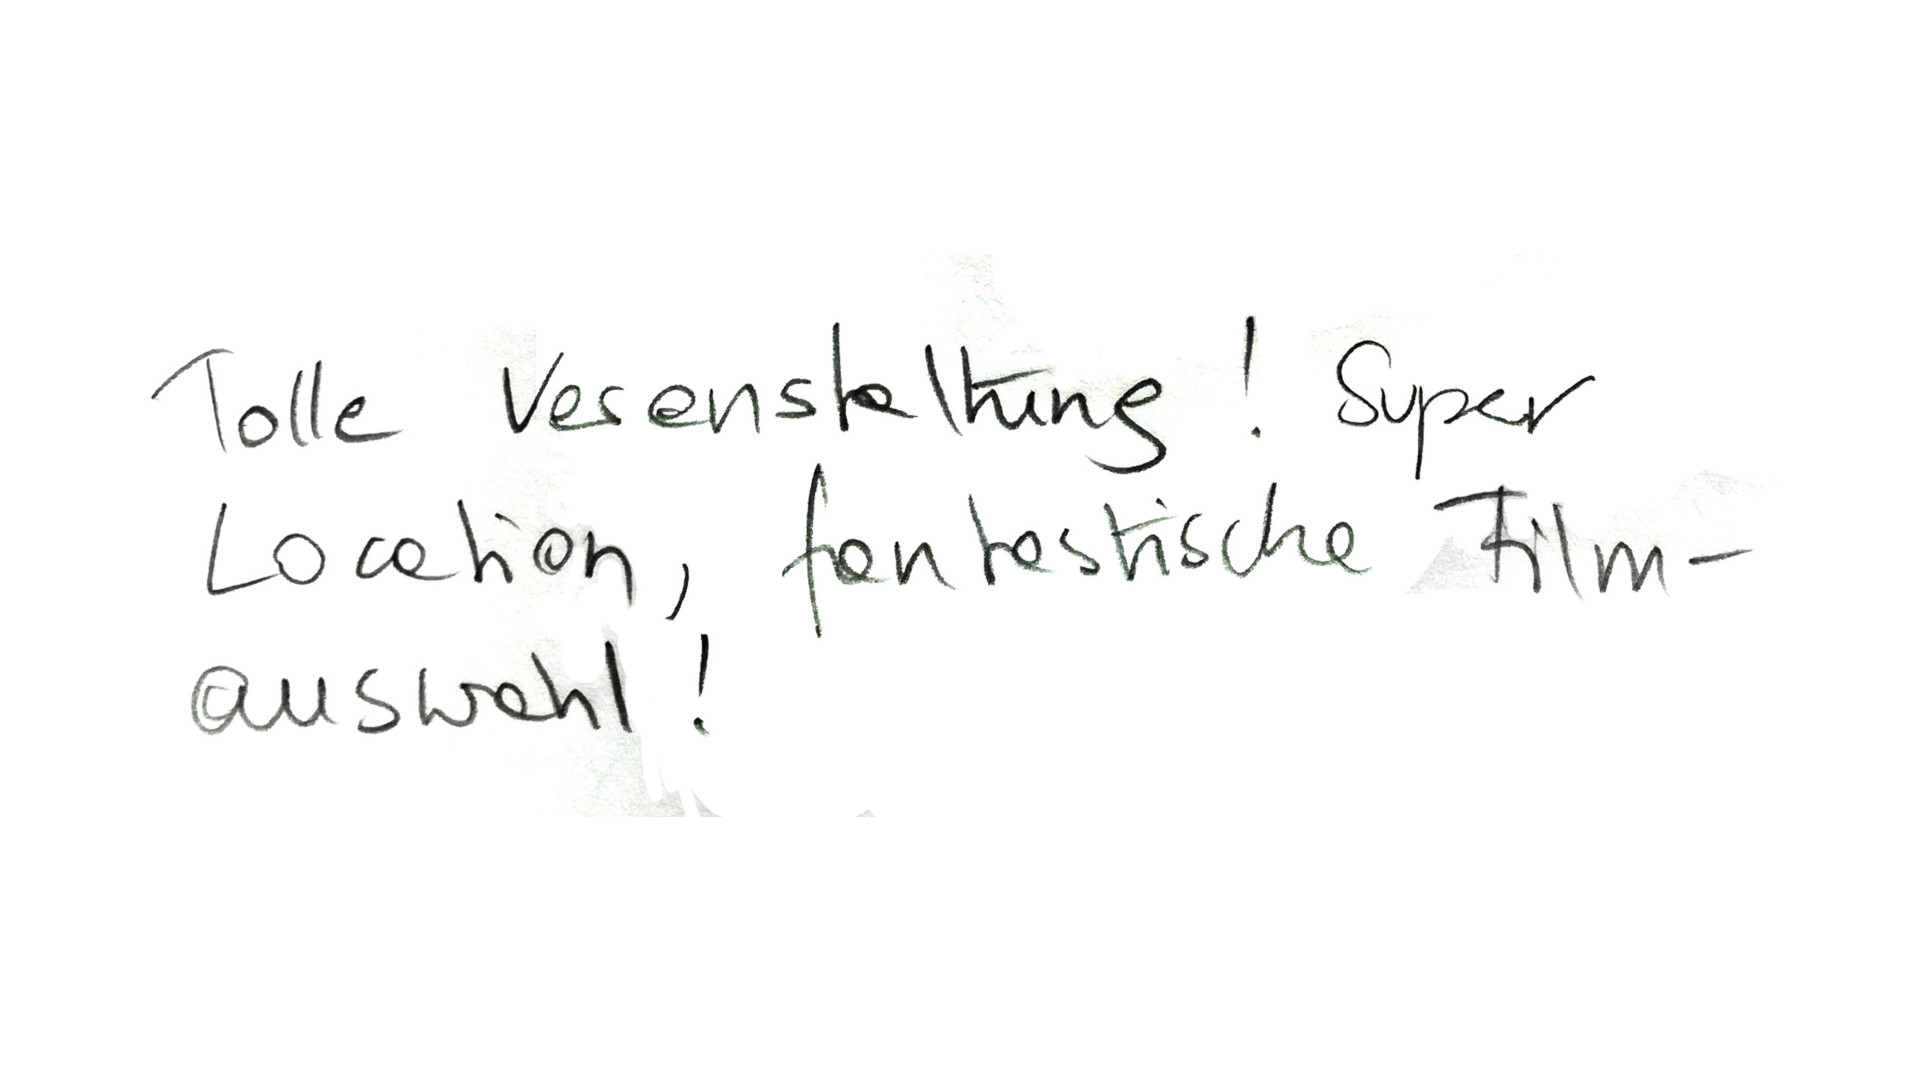 Tolle Veranstaltung! Super
Location, fantastische Film-
auswahl!